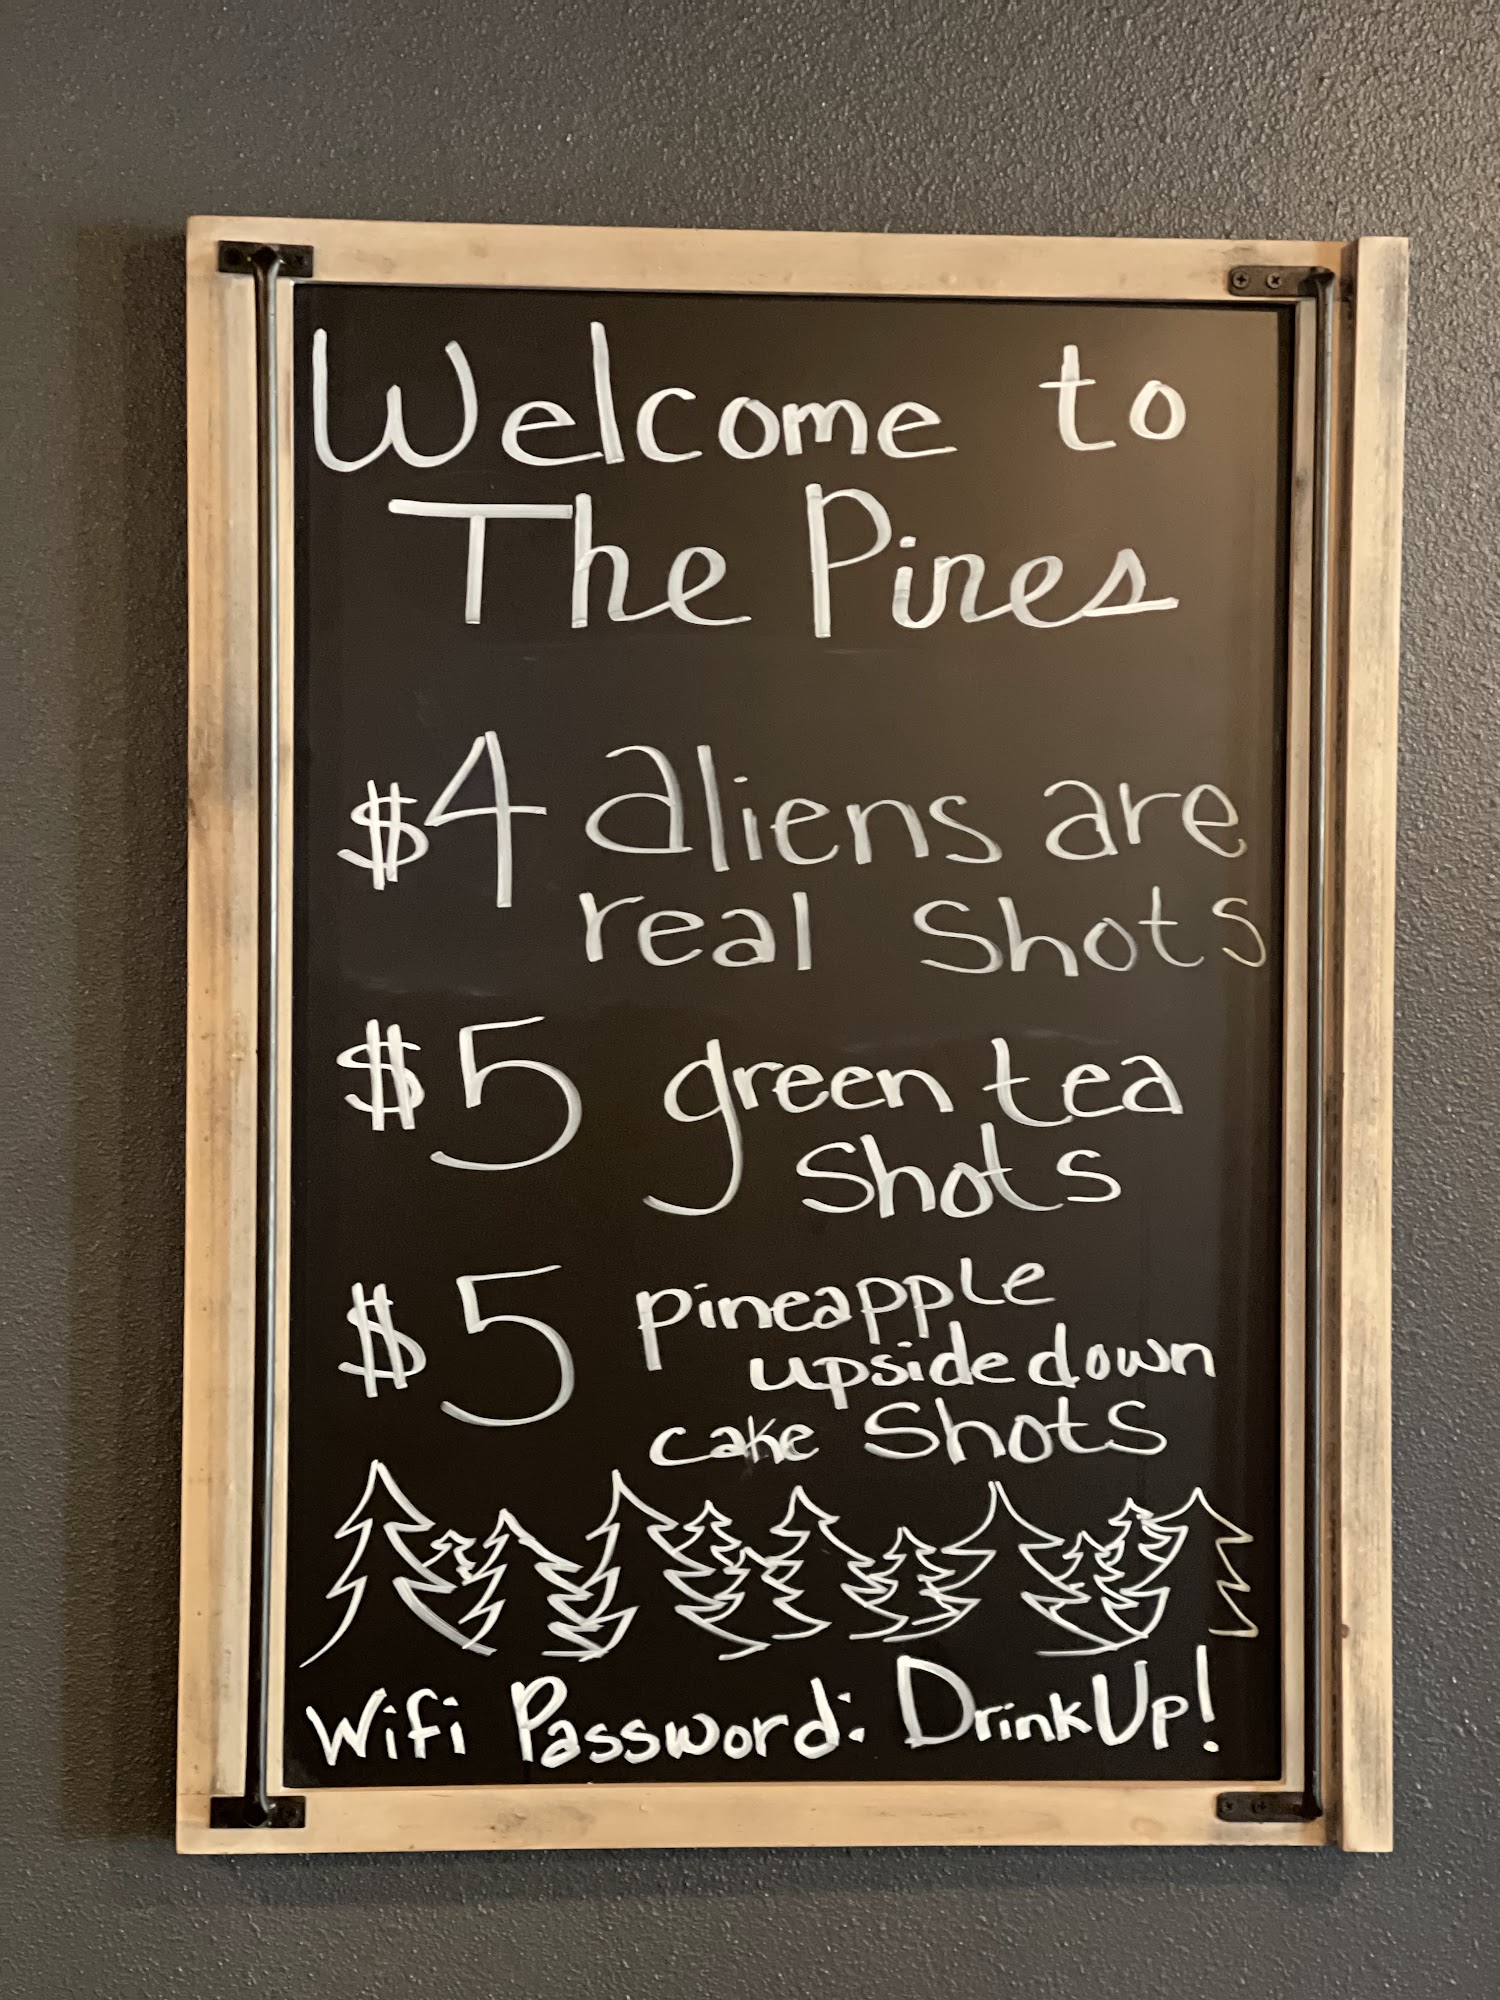 Welcome to
The Pines
$4 aliens are
real shots
$5 green tea
shots
$5 pineapple
upside down
cake shots
Wifi Password: DrinkUp!